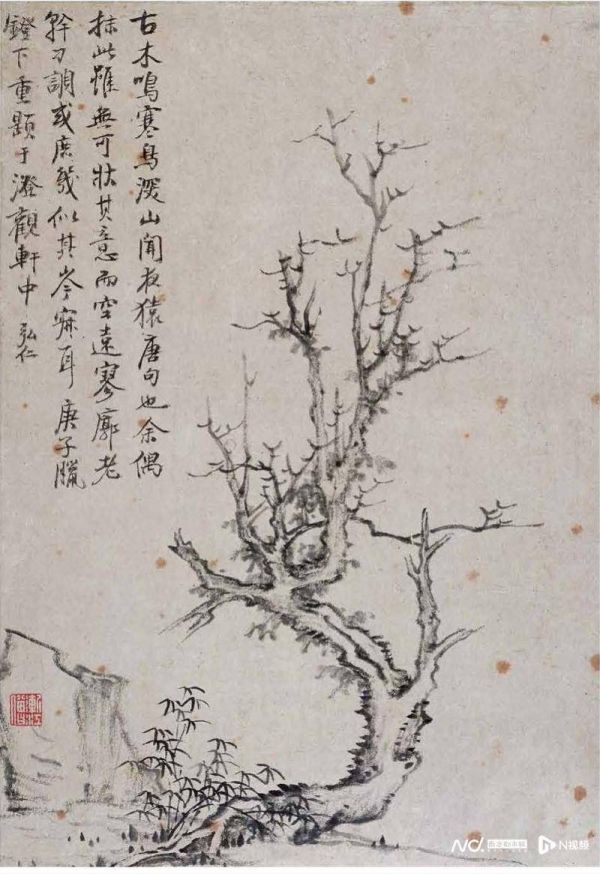 古木鳴寒鳥深山聞夜猿唐句也余偶
抹此雖無可狀其意而空遠寥廓老
幹刁調或庶幾似其岑寂耳庚子臘
鐙下重題于澄觀軒中 弘仁
漸江僧
N视频